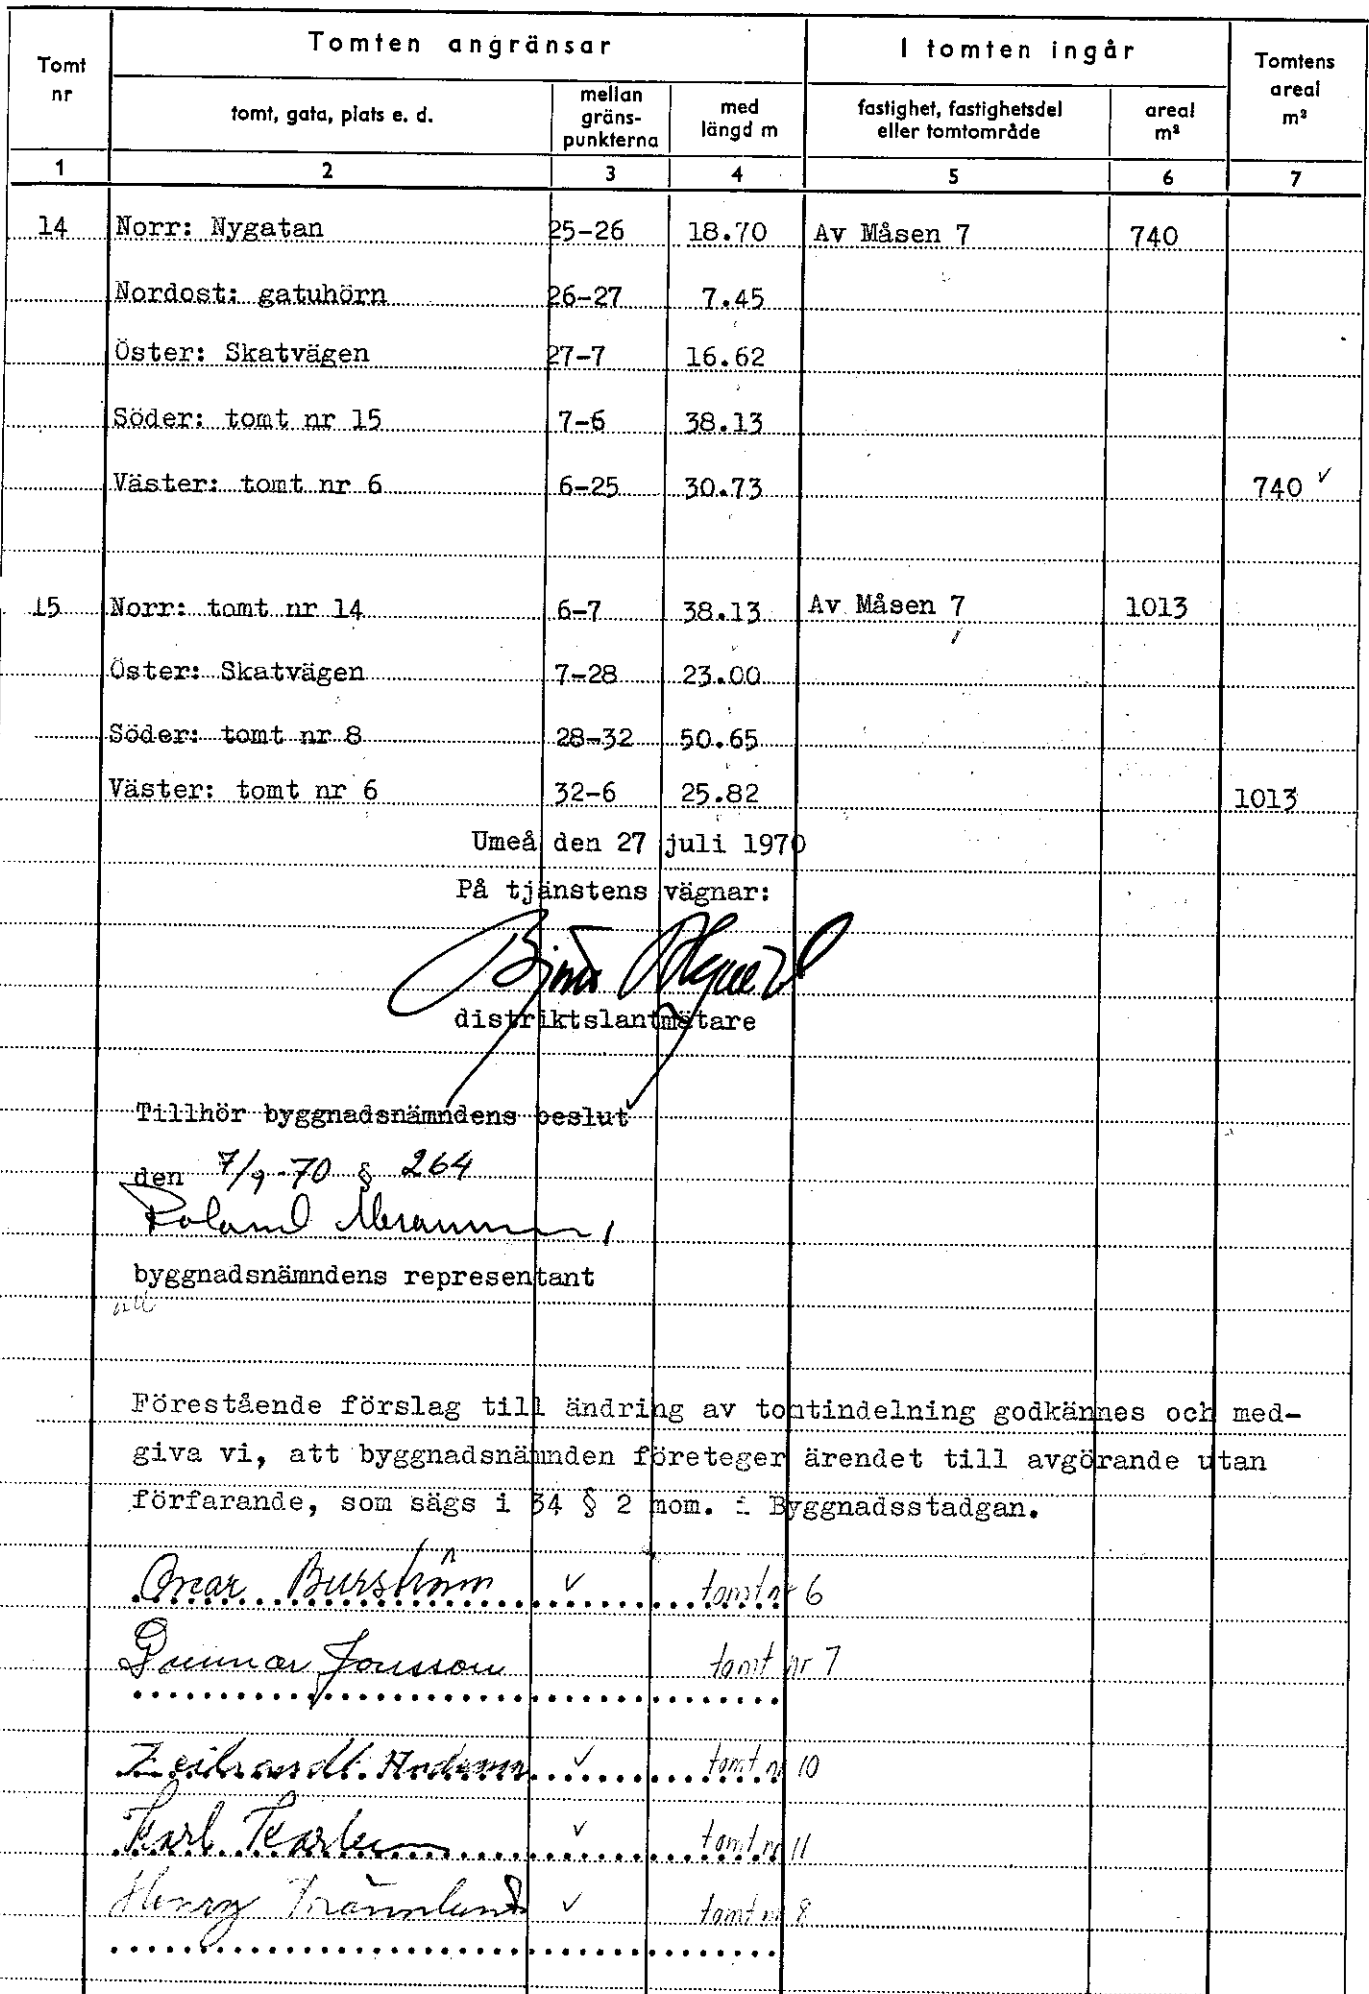 Tomt nr
Tomten angränsar
I tomten ingår
Tomtens areal m²
tomt, gata, plats e. d.
mellan gräns-punkterna
med längd m
fastighet, fastighetsdel eller tomtområde
areal m²
1 2 3 4 5 6 7
14 Norr: Nygatan 25-26 18.70 Av Måsen 7 740
Nordost: gatuhörn 26-27 7.45
Öster: Skatvägen 27-7 16.62
Söder: tomt nr 15 7-6 38.13
Väster: tomt nr 6 6-25 30.73 740 ✓
15 Norr: tomt nr 14 6-7 38.13 Av Måsen 7 1013
Öster: Skatvägen 7-28 23.00
Söder: tomt nr 8 28-32 50.65
Väster: tomt nr 6 32-6 25.82 1013
Umeå den 27 juli 1970
På tjänstens vägnar:
Björn
distriktslantmätare
Tillhör byggnadsnämndens beslut
den 7/9-70 § 264
Roland
byggnadsnämndens representant
Förestående förslag till ändring av tomtindelning godkännes och med-
giva vi, att byggnadsnämnden företeger ärendet till avgörande utan
förfarande, som sägs i 34 § 2 mom. i Byggnadsstadgan.
Omar Burström ✓ tomt nr 6
Gunnar Jonsson tomt nr 7
✓ tomt nr 10
Karl Karlsson ✓ tomt nr 11
Henry Brännlund ✓ tomt nr 8